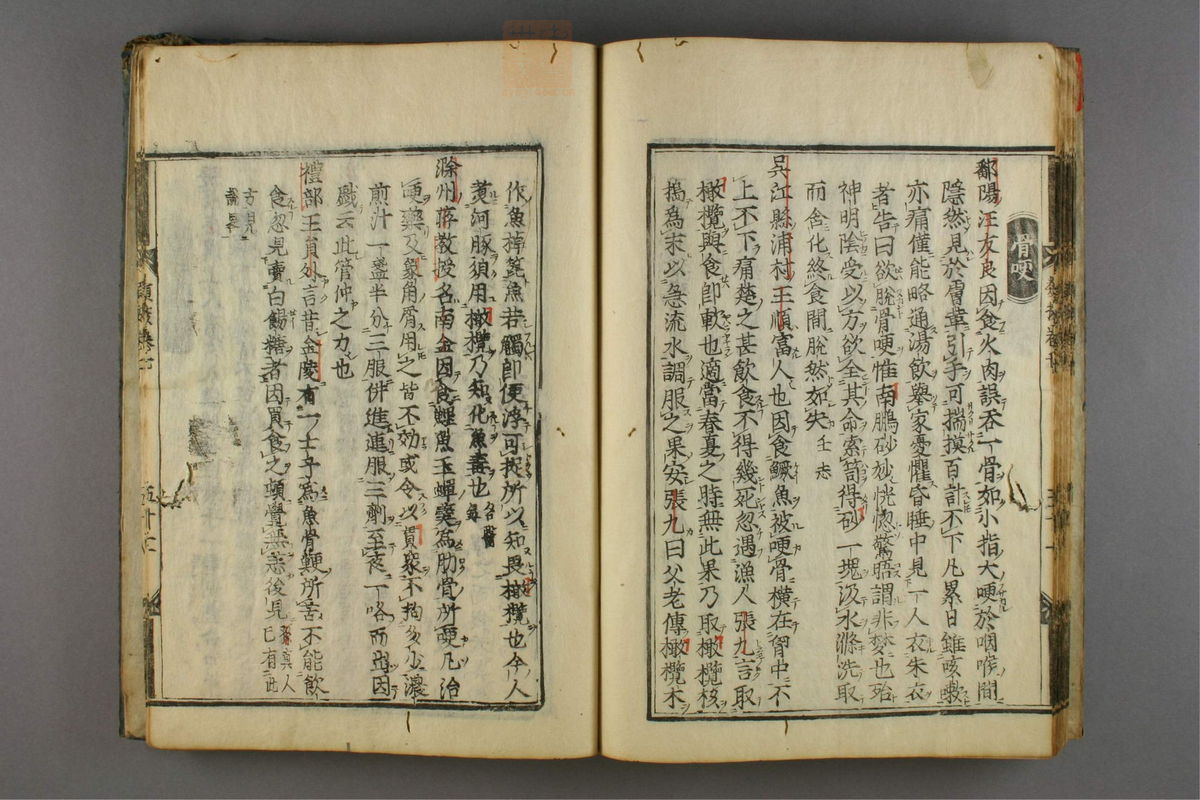 骨哽
鄱陽汪友良因食火肉誤吞一骨如小指大哽於咽喉間
隱然見於膚革引手可揣摸百計不下凡累日雖咳嗽
亦痛僅能略通湯飲舉家憂懼昏睡中見一人衣朱衣
者告曰欲脫骨哽惟南鵬砂妙恍惚驚晤謂非夢也殆
神明陰受以方欲全其命索笥得砂一塊汲水滌洗取
而含化終食間脫然如失 壬志
吳江縣浦村王順富人也因食鱖魚被哽骨橫在胷中不
上不下痛楚之甚飲食不得幾死忽遇漁人張九言取
橄欖與食即軟也適當春夏之時無此果乃取橄欖核
搗為末以急流水調服之果安張九曰父老傳橄欖木
作魚棹篦魚若觸即便浮可捉所以知畏橄欖也今人
煑河豚須用橄欖乃知化魚毒也 名醫録
滁州蔣教授名南金因食鯉魚玉蟬羹為肋骨所哽凡治
哽藥及象角屑用之皆不効或令以貫衆不拘多少濃
煎汁一盞半分三服併進連服三劑至夜一咯而出因
戲云此管仲之力也
禮部王員外言昔金陵有一士子為魚骨鯁所苦不能飲
食忽見賣白餳糖者因買食之頓覺無恙後見孫真人已有此
方見說畧